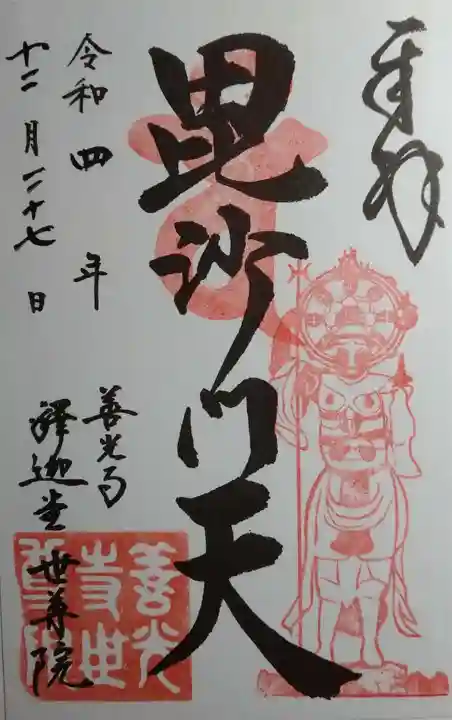 奉拝
毘沙門天
令和四年
十二月二十七日
善光寺
釋迦堂世尊院
善光
寺世
尊院